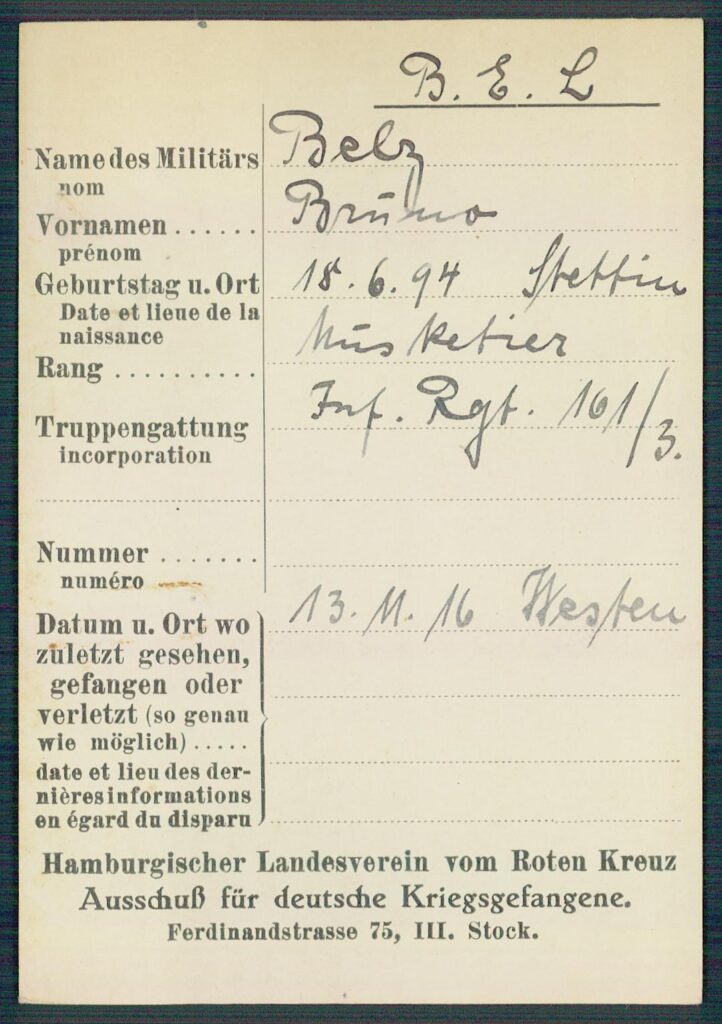 B. E. L
Name des Militärs Belz
nom
Vornamen ...... Bruno
prénom
Geburtstag u. Ort 18.6.94 Stettin
Date et lieue de la
naissance
Rang .......... Musketier
Truppengattung Inf. Rgt. 161/3.
incorporation
Nummer .......
numéro
Datum u. Ort wo 13.11.16 Westen
zuletzt gesehen,
gefangen oder
verletzt (so genau
wie möglich) .....
date et lieu des der-
nières informations
en égard du disparu
Hamburgischer Landesverein vom Roten Kreuz
Ausschuß für deutsche Kriegsgefangene.
Ferdinandstrasse 75, III. Stock.